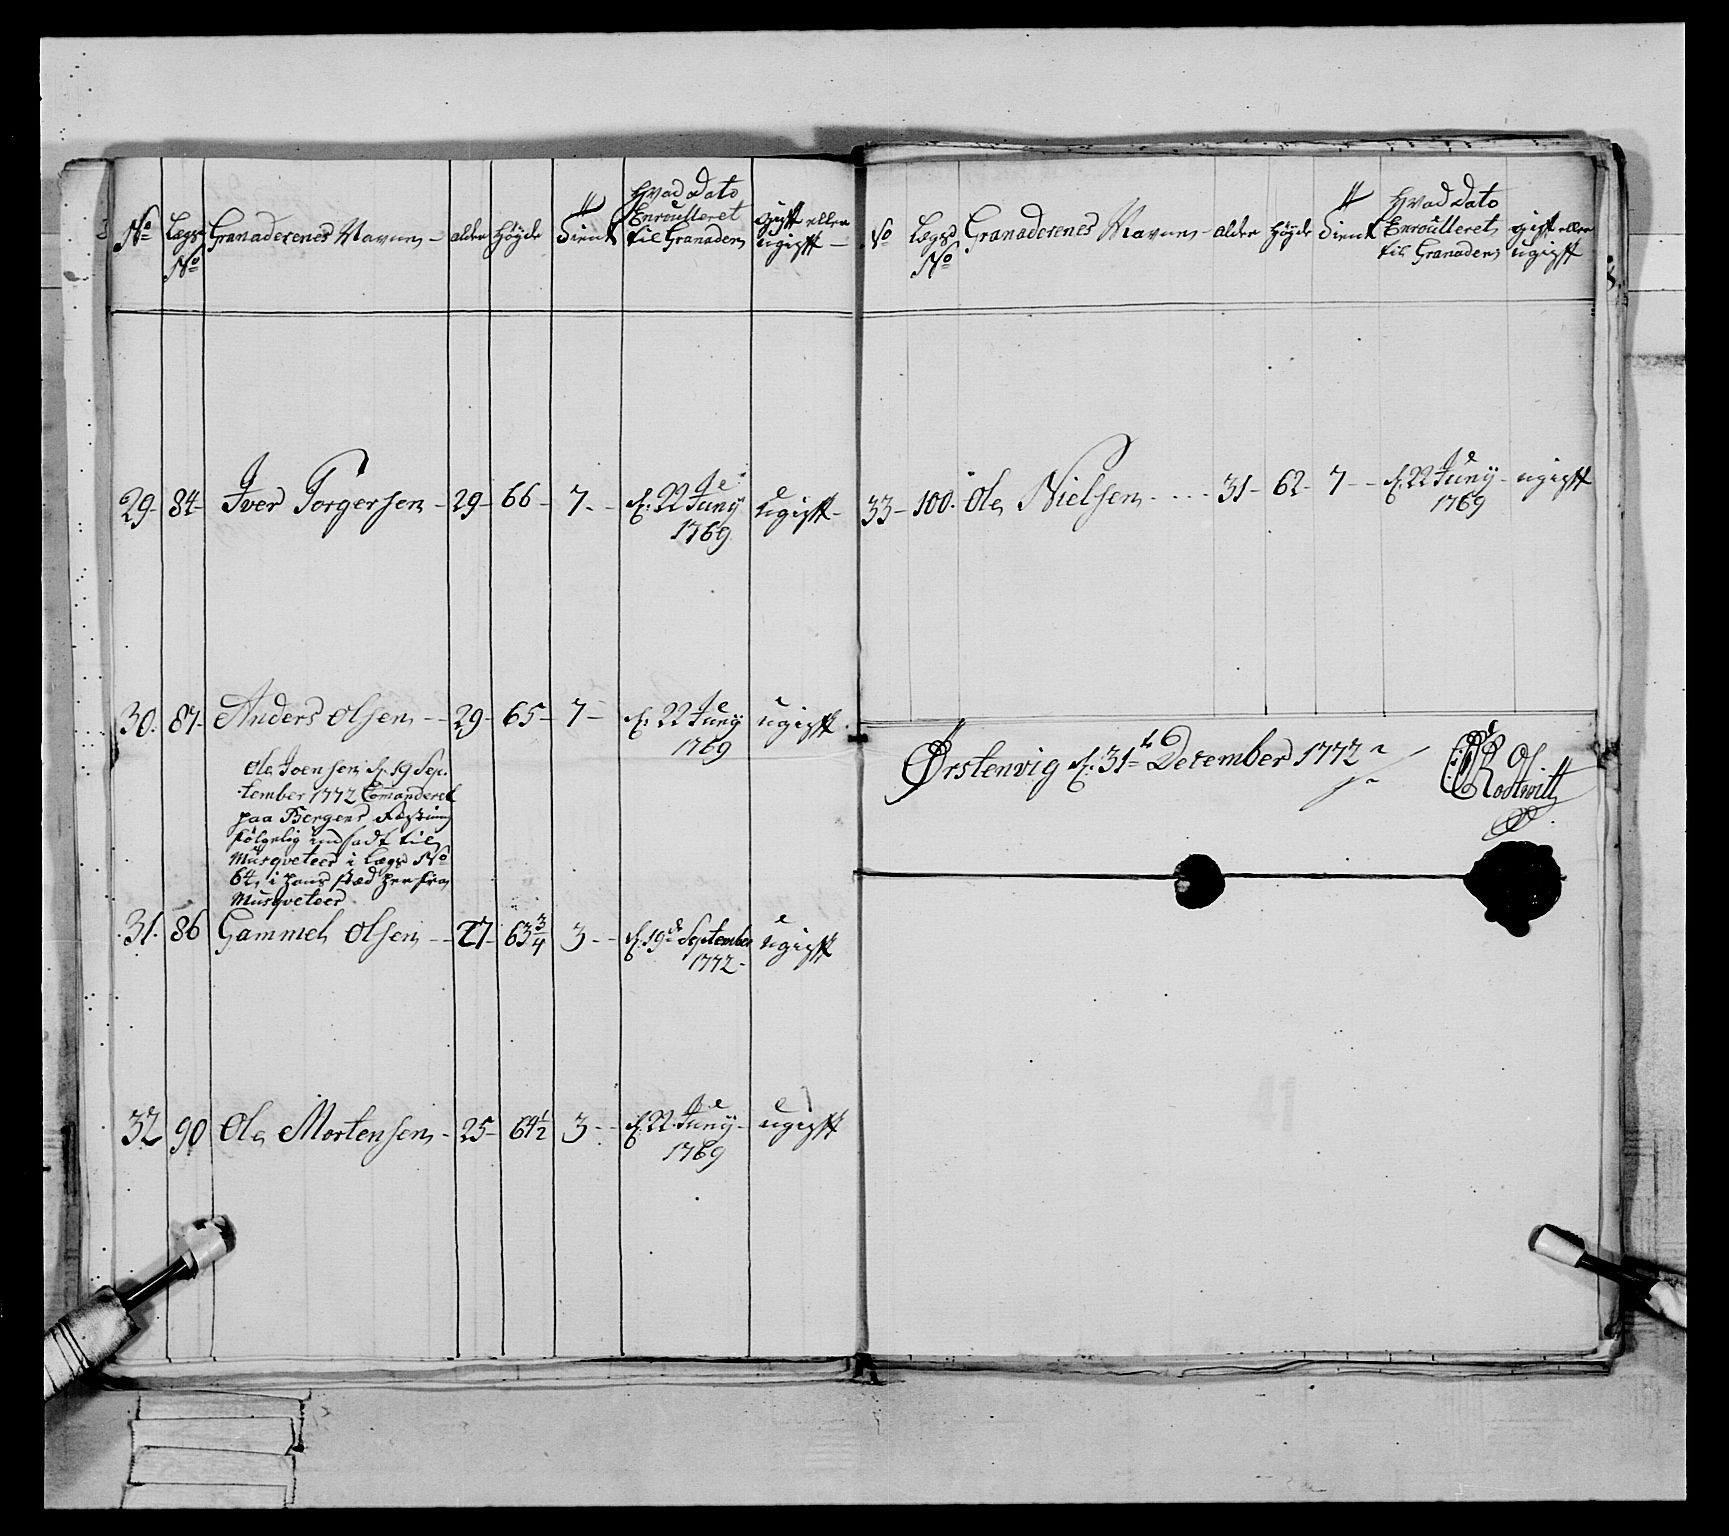 No Lægs No Granaderenes Navne - alder Høyde Tient Hvad Dato Enroulleret til Granader gift eller ugift -
29- 84- Iver Torgersen - 29- 66- 7 - - d: 22 Juny 1769 ugift -
30. 87- Anders Olsen - - 29- 65- 7 - d: 22 Juny 1769 ugift.
Ole Joensen d. 19 Sep-
tember 1772 Comanderet
paa Bergens Fæstning
følgelig indsadt til
Musqveteer i Lægd No
64, i hans stæd her fra
Musqveteer
31. 86 Gammel Olsen - - 27- 63 3/4 3 - - d. 19de September 1772 - ugift
32 90 Ole Mortensen - 25- 64 1/2 3 - - d. 22 Juny - 1769 ugift
No Lægs No Granaderenes Navne - alder Høyde Tient Hvad Dato Enroulleret til Granader gift eller ugift
33- 100. Ole Nielsen - - - - 31- 62- 7 - - d. 22 Juny - 1769 ugift
Ørstenvig d. 31te December 1772